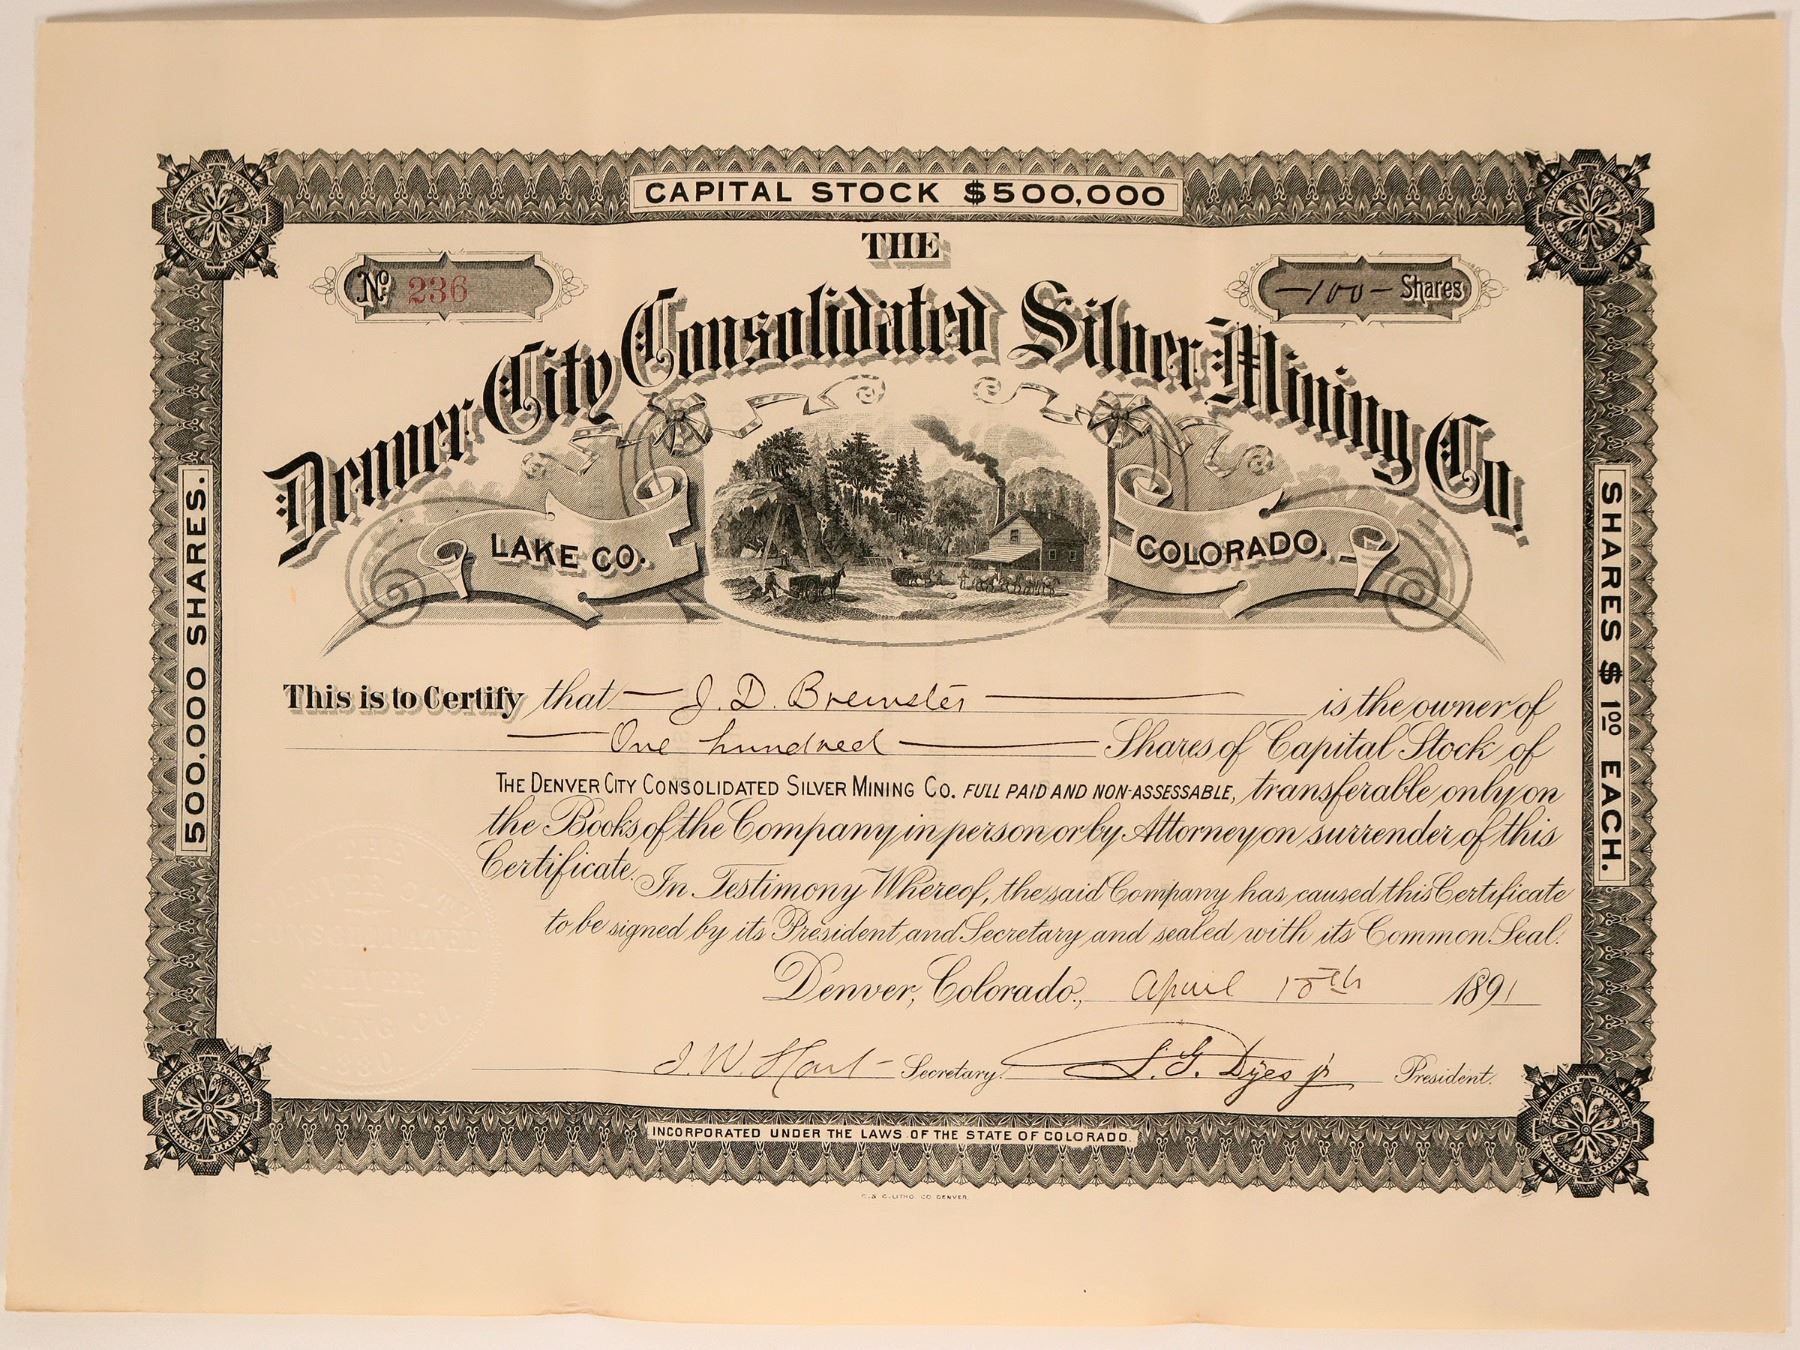 CAPITAL STOCK $500,000
THE
No 236
-100- Shares
Denver City Consolidated Silver Mining Co.
LAKE CO.
COLORADO.
500.000 SHARES.
SHARES $ 1 00 EACH.
This is to Certify that J. D. Brewster is the owner of
One hundred Shares of Capital Stock of
THE DENVER CITY CONSOLIDATED SILVER MINING CO. FULL PAID AND NON-ASSESSABLE, transferable only on
the Books of the Company in person or by Attorney on surrender of this
Certificate. In Testimony Whereof, the said Company has caused this Certificate
to be signed by its President and Secretary and sealed with its Common Seal.
Denver, Colorado, April 1891
J. W. Hart Secretary. Dyes jr President.
INCORPORATED UNDER THE LAWS OF THE STATE OF COLORADO.
LITHO. CO DENVER.